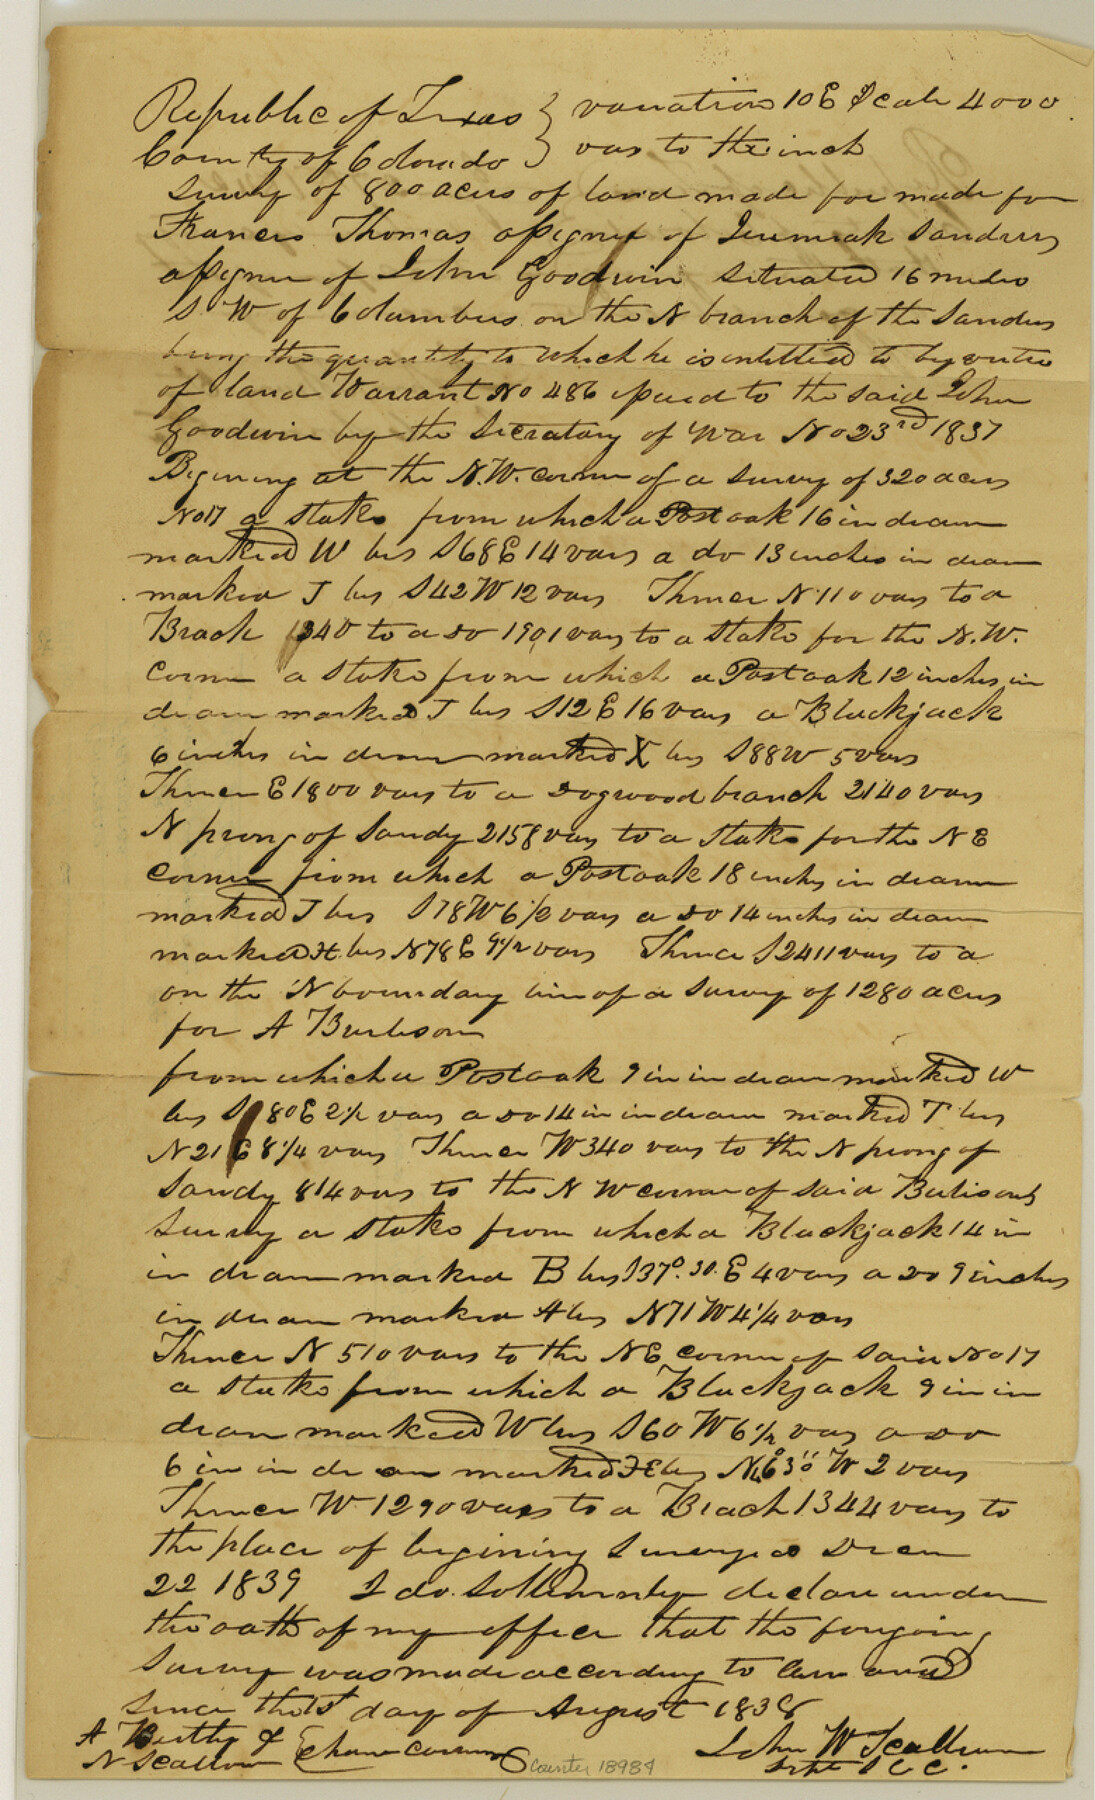 Republic of Texas } variation 10 E Scale 4000
County of Colorado } vars to the inch
Survey of 800 acres of land made for made for
Francis Thomas assignee of Jeremiah Sanders
assignee of John Goodwin situated 16 miles
S W of Columbus on the N branch of the Sandies
being the quantity to which he is intitled to by virtue
of land Warrant No 486 issued to the said John
Goodwin by the Secratary of War No 23rd 1837
Begining at the N.W. corner of a survey of 320 acres
No 17 a stake from which a Post oak 16 in diam
marked W brs S 68 E 14 vars a do 13 inches in diam
marked J brs S 42 W 12 vars Thence N 110 vars to a
Brach 1340 to a do 1901 vars to a stake for the N.W.
corner a stake from which a Post oak 12 inches in
diam marked J brs S 12 E 16 vars a Blackjack
6 inches in diam marked X brs S 88 W 5 vars
Thence E 1800 vars to a Dogwood branch 2140 vars
N prong of Sandy 2158 vars to a stake for the N E
corner from which a Post oak 18 inches in diam
marked J brs S 78 W 6 1/2 vars a do 14 inches in diam
marked H brs N 78 E 9 1/2 vars Thence S 2411 vars to a
on the N boundary line of a survey of 1280 acres
for A Burleson
from which a Post oak 9 in in diam marked W
brs S 80 E 2 1/2 vars a do 14 in in diam marked T brs
N 21 E 8 1/4 vars Thence W 340 vars to the N prong of
Sandy 814 vars to the N W corner of said Burlisons
survey a stake from which a Blackjack 14 in
in diam marked B brs S 37°.30. E 4 vars a do 9 inches
in diam marked H brs N 71 W 4 1/4 vars
Thence N 510 vars to the N E corner of said No 17
a stake from which a Blackjack 9 in in
diam marked W brs S 60 W 6 1/2 vars a do
6 in in diam marked H brs W 2 vars
Thence W 1290 vars to a Brach 1344 vars to
the place of begining Surveyed
22 1839 I do sollemnly declare under
the oath of my office that the forgoing
survey was made according to law and
since the 1st day of August 1838
A
N Scallorn } chain carriers
John W Scallorn
S C C.
counter 18984